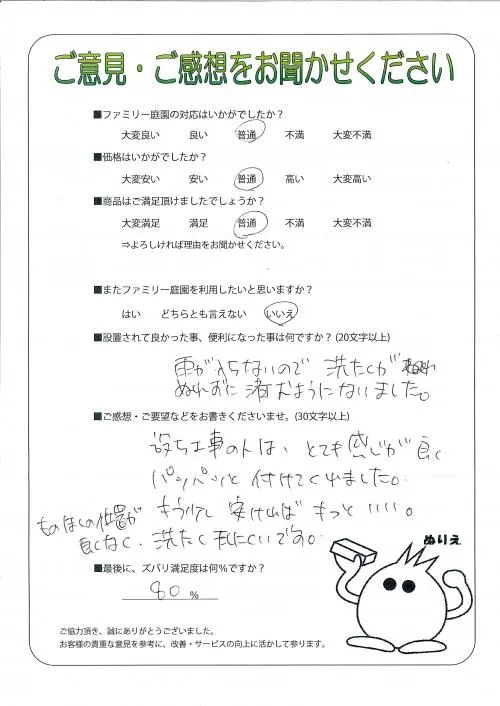 ご意見・ご感想をお聞かせください
■ファミリー庭園の対応はいかがでしたか?
大変良い 良い 普通 不満 大変不満
■価格はいかがでしたか?
大変安い 安い 普通 高い 大変高い
■商品はご満足頂けましたでしょうか?
大変満足 満足 普通 不満 大変不満
⇒よろしければ理由をお聞かせください。
■またファミリー庭園を利用したいと思いますか?
はい どちらとも言えない いいえ
■設置されて良かった事、便利になった事は何ですか?(20文字以上)
雨が入らないので 洗たくが
ぬれずに 済むようになりました。
■ご感想・ご要望などをお書きくださいませ。(30文字以上)
設ち工事の人は、とても感じが良く
パンパンと 付けてくれました。
もう少し 安ければ もっと いい。
ものほしの位置が
良くなく、洗たく干しにくいです。
■最後に、ズバリ満足度は何%ですか?
80 %
ぬりえ
ご協力頂き、誠にありがとうございました。
お客様の貴重な意見を参考に、改善・サービスの向上に活かして参ります。